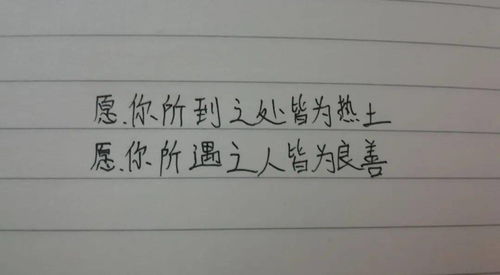 愿你所到之处皆为热土
愿你所遇之人皆为良善